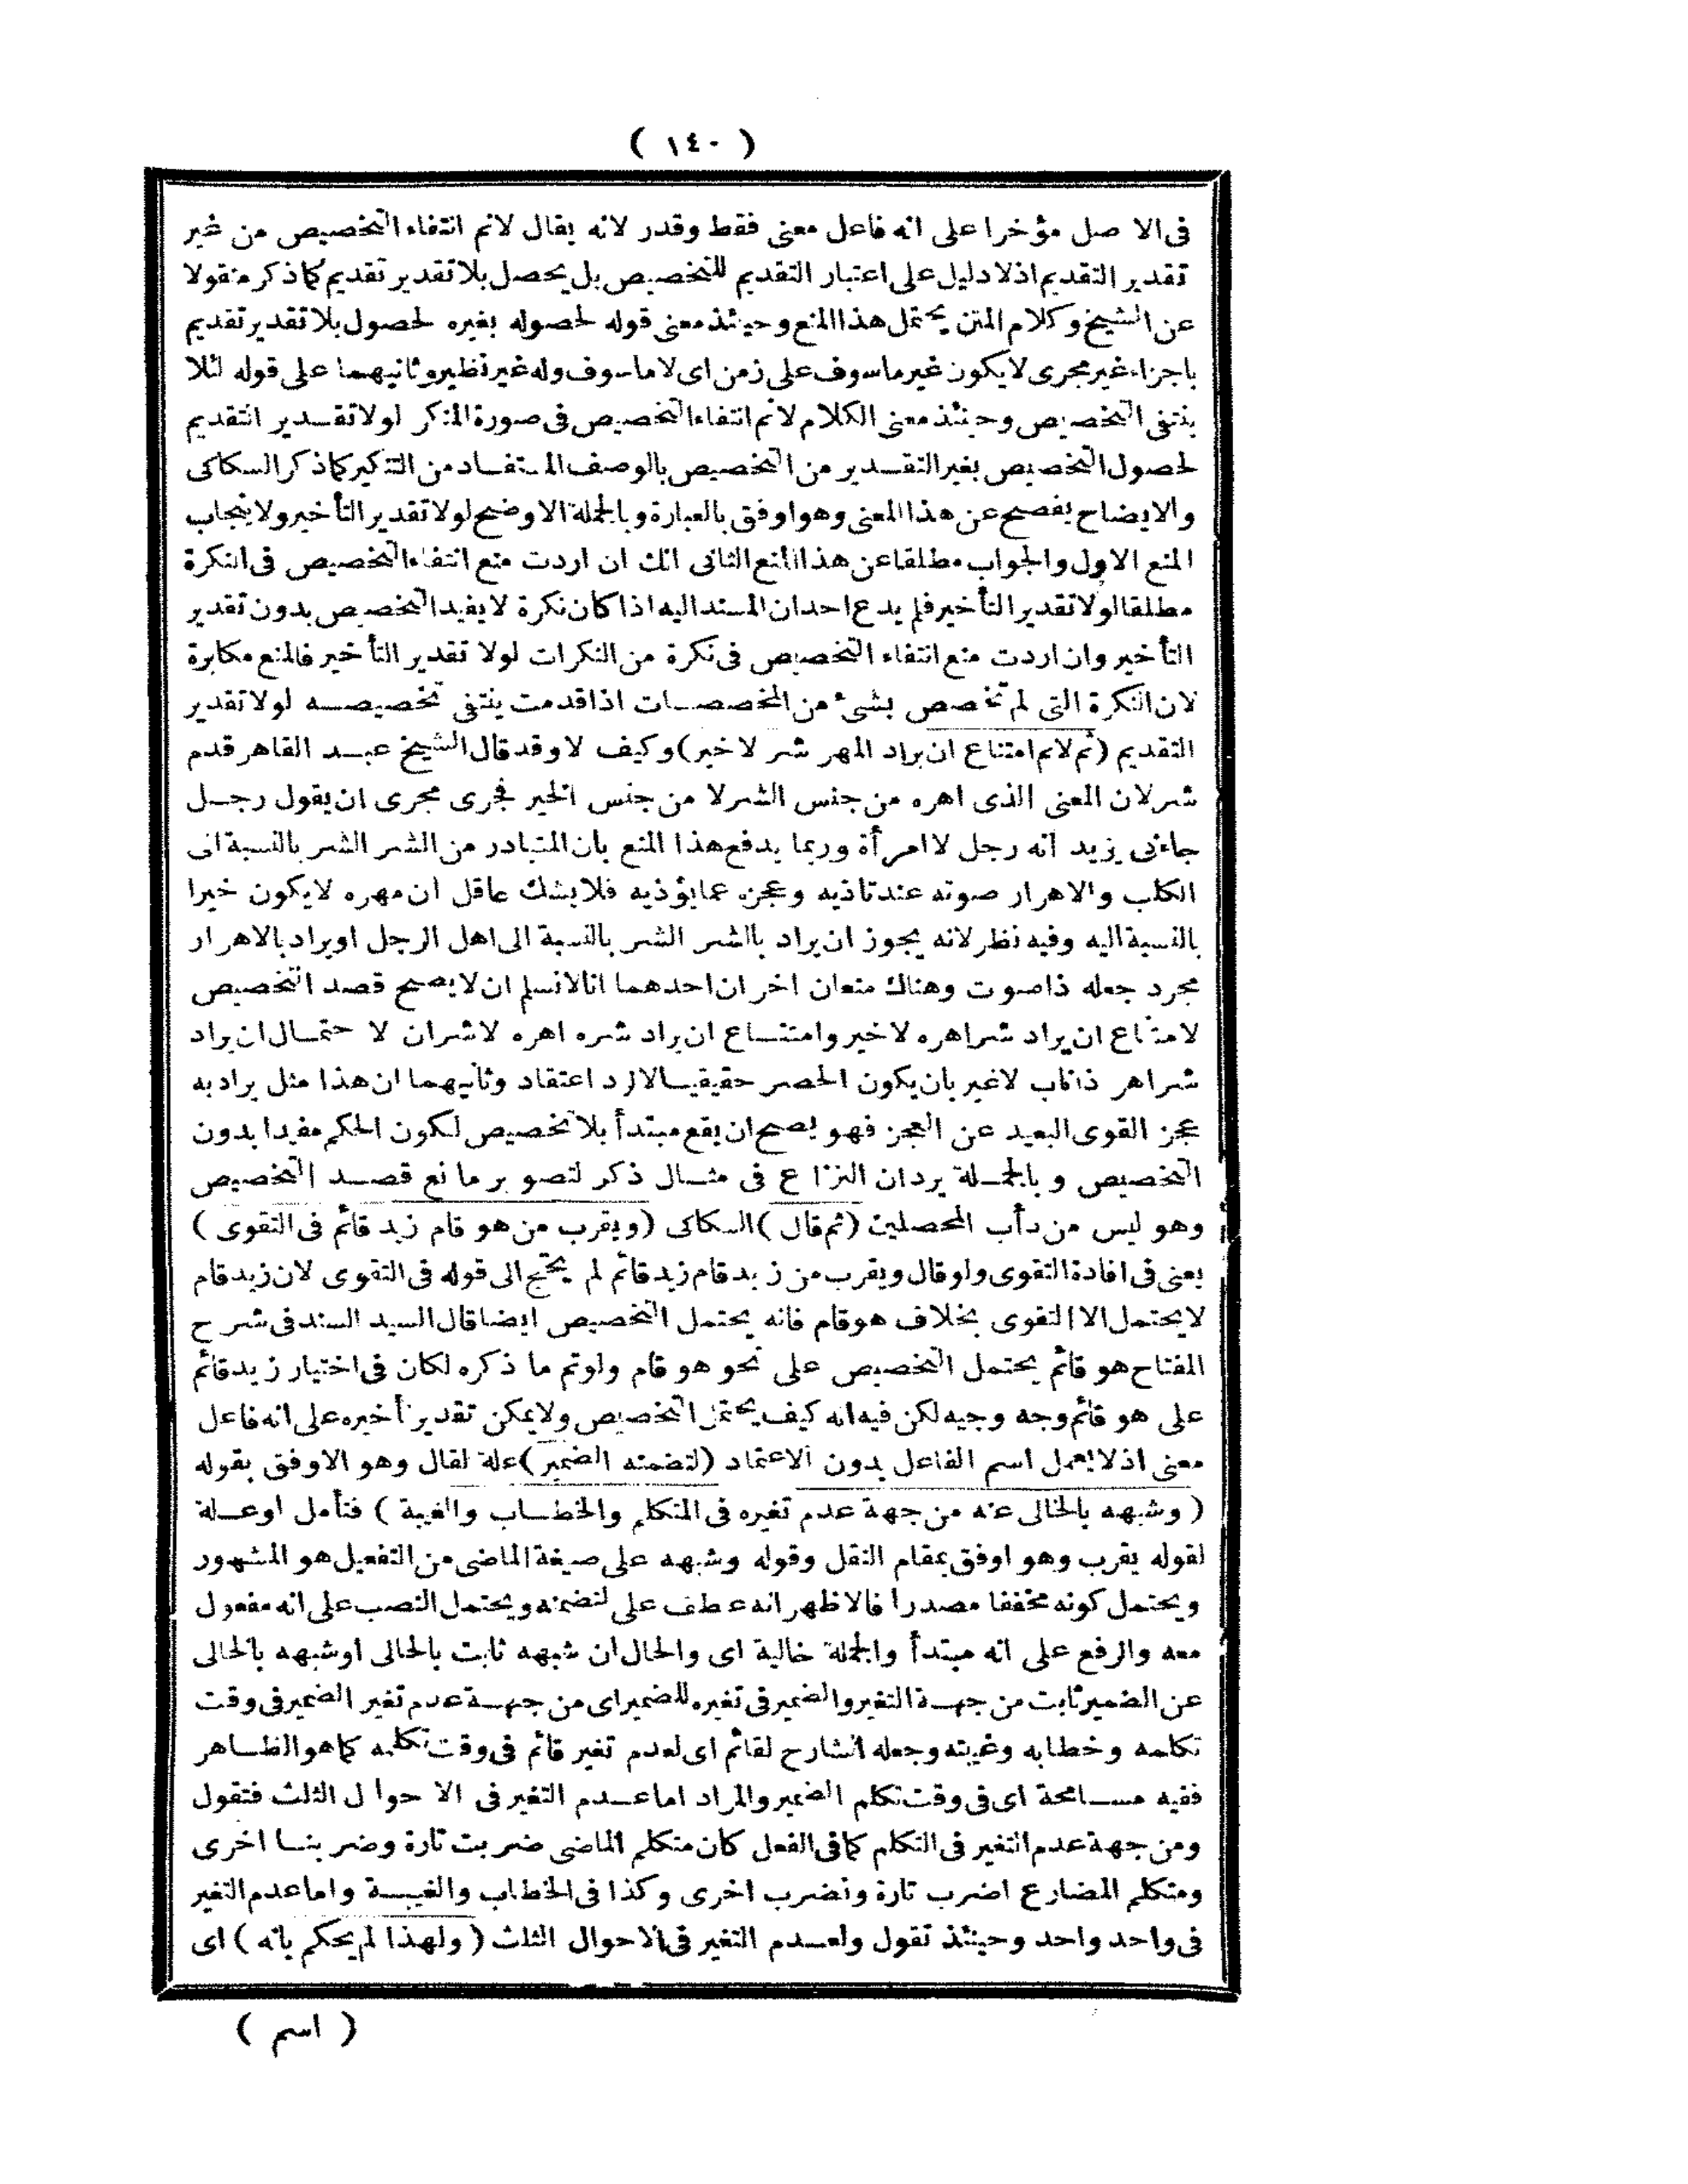 ( ١٤٠ )
فى الاصل مؤخرا على انه فاعل معنى فقط وقدر لانه يقال لانم انتفاء التخصيص من غير
تقدير التقديم اذلا دليل على اعتبار التقديم للتخصيص بل يحصل بلا تقدير تقديم كما ذكر منقولا
عن الشيخ وكلام المتن يحتمل هذا المنع وحينئذ معنى قوله لحصوله بغيره لحصول بلا تقدير تقديم
باجراء غير مجرى لا يكون غير ماسوف على زمن اى لا ماسوف وله غير نظيره ثانيهما على قوله لئلا
ينتفى التخصيص وحينئذ معنى الكلام لانم انتفاء التخصيص فى صورة المنكر لولا تقدير التقديم
لحصول التخصيص بغير التقدير من التخصيص بالوصف المستفاد من التنكير كما ذكر السكاكى
والايضاح يفصح عن هذا المعنى وهو اوفق بالعبارة وبالجملة الاوضح لولا تقدير التأخير ولا ينجاب
المنع الاول والجواب مطلقا عن هذا المنع الثانى انك ان اردت منع انتفاء التخصيص فى النكرة
مطلقا لولا تقدير التأخير فلم يدع احد ان المسند اليه اذا كان نكرة لا يفيد التخصيص بدون تقدير
التأخير وان اردت منع انتفاء التخصيص فى نكرة من النكرات لولا تقدير التأخير فالمنع مكابرة
لان النكرة التى لم تخصص بشئ من المخصصات اذا قدمت ينتفى تخصيصه لولا تقدير
التقديم (ثم لانم امتناع ان يراد المهر شر لا خير) وكيف لا وقد قال الشيخ عبد القاهر قدم
شر لان المعنى الذى اهره من جنس الشر لا من جنس الخير فجرى مجرى ان يقول رجل
جاءنى يزيد انه رجل لا امرأة وربما يدفع هذا المنع بان المتبادر من الشر الشر بالنسبة الى
الكلب والاهرار صوته عند تاذيه وعجزه عما يؤذيه فلا يشك عاقل ان مهره لا يكون خيرا
بالنسبة اليه وفيه نظر لانه يجوز ان يراد بالشر الشر بالنسبة الى اهل الرجل او يراد بالاهرار
مجرد جعله ذا صوت وهناك منعان اخران احدهما انا لا نسلم ان لا يصح قصد التخصيص
لامتناع ان يراد شر اهره لا خير وامتناع ان يراد شره اهره لا شران لا حتمال ان يراد
شر اهر ذاناب لا غير بان يكون الحصر حقيقيا لا لرد اعتقاد وثانيهما ان هذا مثل يراد به
عجز القوى البعيد عن العجز فهو يصح ان يقع مبتدأ بلا تخصيص لكون الحكم مفيدا بدون
التخصيص وبالجملة يرد ان النزاع فى مثال ذكر لتصوير مانع قصد التخصيص
وهو ليس من دأب المحصلين (ثم قال) السكاكى (ويقرب من هو قام زيد قائم فى التقوى)
يعنى فى افادة التقوى ولو قال ويقرب من زيد قام زيد قائم لم يحتج الى قوله فى التقوى لان زيد قام
لا يحتمل الا التقوى بخلاف هو قام فانه يحتمل التخصيص ايضا قال السيد السند فى شرح
المفتاح هو قائم يحتمل التخصيص على نحو هو قام ولو تم ما ذكره لكان فى اختيار زيد قائم
على هو قائم وجه وجيه لكن فيه انه كيف يحتمل التخصيص ولا يمكن تقدير تأخيره على انه فاعل
معنى اذ لا يعمل اسم الفاعل بدون الاعتماد (لتضمنه الضمير) علة لقال وهو الاوفق بقوله
(وشبهه بالخالى عنه من جهة عدم تغيره فى المتكلم والخطاب والغيبة) فتأمل او علة
لقوله يقرب وهو اوفق بمقام النقل وقوله وشبهه على صيغة الماضى من التفعيل هو المشهور
ويحتمل كونه مخففا مصدرا فالاظهر انه عطف على لتضمنه ويحتمل النصب على انه مفعول
معه والرفع على انه مبتدأ والجملة حالية اى والحال ان شبهه ثابت بالخالى او شبهه بالخالى
عن الضمير ثابت من جهة التغير والضمير فى تغيره للضمير اى من جهة عدم تغير الضمير فى وقت
تكلمه وخطابه وغيبته وجعله الشارح لقائم اى لعدم تغير قائم فى وقت تكلمه كما هو الظاهر
ففيه مسامحة اى فى وقت تكلم الضمير والمراد اما عدم التغير فى الاحوال الثلث فتقول
ومن جهة عدم التغير فى التكلم كما فى الفعل كان متكلم الماضى ضربت تارة وضربنا اخرى
ومتكلم المضارع اضرب تارة ونضرب اخرى وكذا فى الخطاب والغيبة واما عدم التغير
فى واحد واحد وحينئذ تقول ولعدم التغير فى الاحوال الثلث (ولهذا لم يحكم بانه) اى
( اسم )